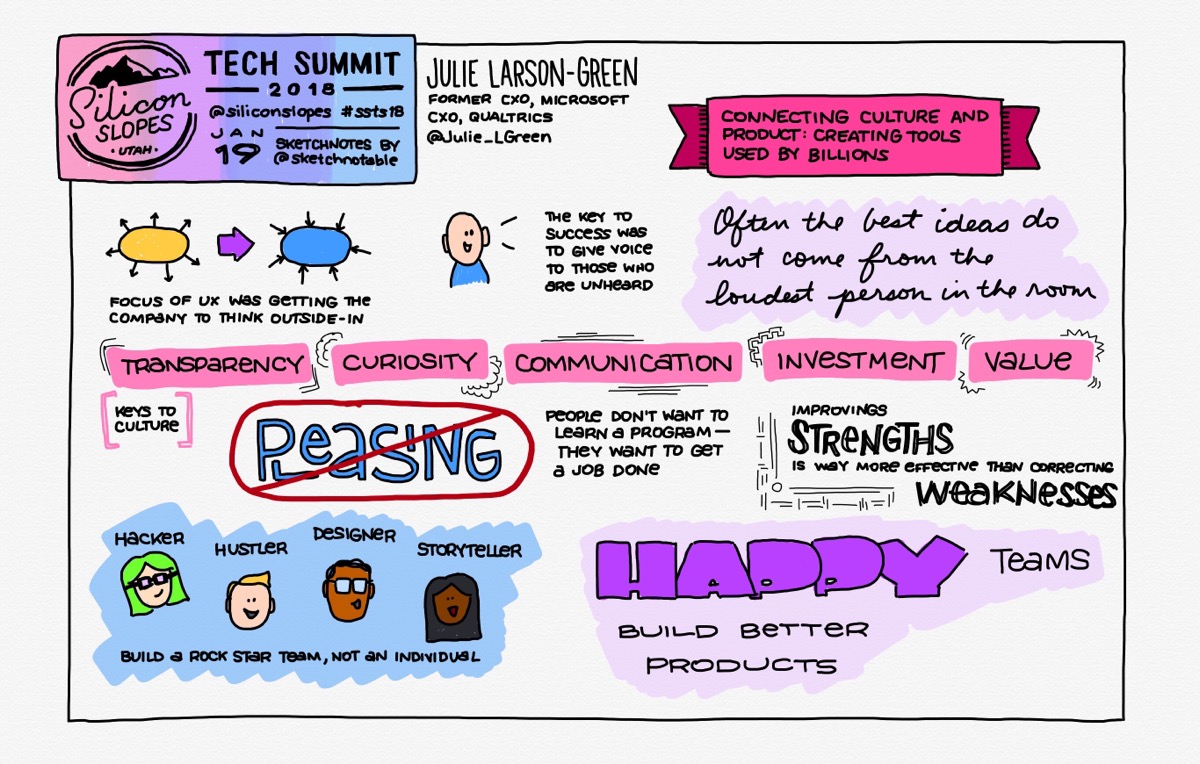 Silicon
SLOPES
• UTAH •
TECH SUMMIT
2018
@siliconslopes #ssts18
JAN
19
SKETCHNOTES BY
@sketchnotable
JULIE LARSON-GREEN
FORMER CXO, MICROSOFT
CXO, QUALTRICS
@Julie_LGreen
CONNECTING CULTURE AND
PRODUCT: CREATING TOOLS
USED BY BILLIONS
FOCUS OF UX WAS GETTING THE
COMPANY TO THINK OUTSIDE-IN
THE KEY TO
SUCCESS WAS
TO GIVE VOICE
TO THOSE WHO
ARE UNHEARD
Often the best ideas do
not come from the
loudest person in the room
TRANSPARENCY
CURIOSITY
COMMUNICATION
INVESTMENT
VALUE
KEYS TO
CULTURE
PLEASING
PEOPLE DON'T WANT TO
LEARN A PROGRAM —
THEY WANT TO GET
A JOB DONE
IMPROVINGS
STRENGTHS
IS WAY MORE EFFECTIVE THAN CORRECTING
WEAKNESSES
HACKER
HUSTLER
DESIGNER
STORYTELLER
BUILD A ROCK STAR TEAM, NOT AN INDIVIDUAL
HAPPY TEAMS
BUILD BETTER
PRODUCTS